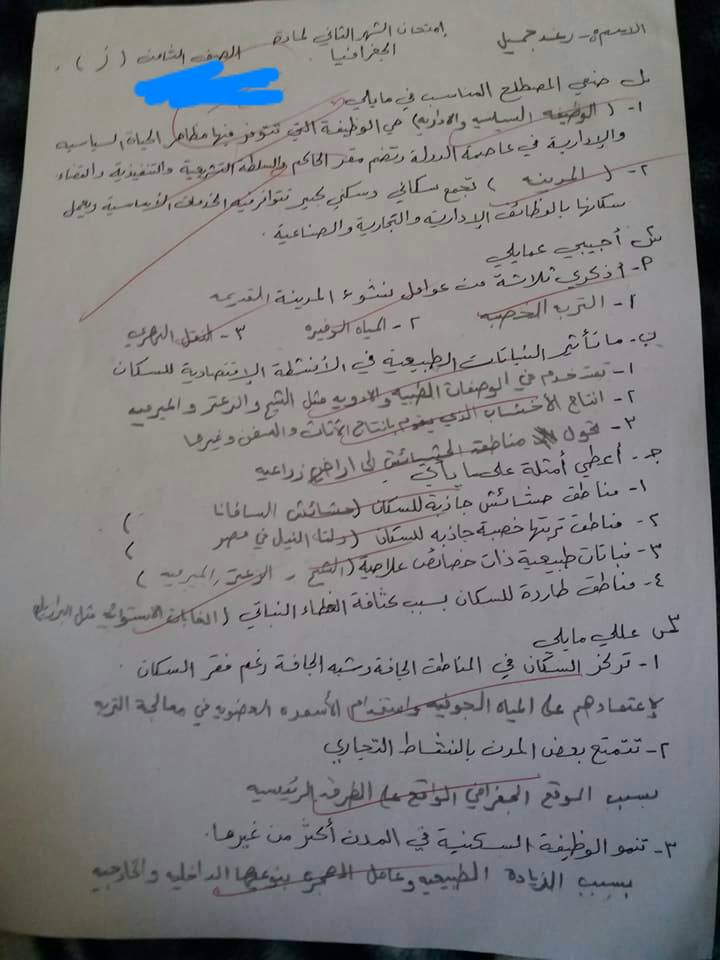 الاسم :- رغد جميل
إمتحان الشهر الثاني لمادة الجغرافيا
الصف الثامن ( ز ) .
س١ ضعي المصطلح المناسب في مايلي
١- ( الوظيفه السياسيه والاداريه ) هي الوظيفة التي تتوفر فيها مظاهر الحياة السياسيه
والإدارية في عاصمة الدولة وتضم مقر الحاكم والسلطة التشريعية والتنفيذية والقضاء
٢- ( المدينه ) تجمع سكاني وسكني كبير تتوافر فيه الخدمات الأساسية ويعمل
سكانها بالوظائف الإدارية والتجارية والصناعية .
س٢ أجيبي عمايلي
٢- أذكري ثلاثة من عوامل نشوء المدينة القديمه
١- الترب الخصبه ٢- المياه الوفيره ٣- النقل النهري
ب- ما تأثير النباتات الطبيعية في الأنشطة الإقتصادية للسكان
١- تستخدم في الوصفات الطبيه والادويه مثل الشيح والزعتر والميرميه
٢- انتاج الأخشاب الذي يقوم بانتاج الأثاث والسفن وغيرها
٣- تحول مناطقه الحشائش الى اراضي زراعيه
جـ- أعطي أمثلة على ما يأتي
١- مناطق حشائش جاذبة للسكان ( حشائش السافانا )
٢- مناطق تربتها خصبة جاذبه للسكان ( دلتا النيل في مصر )
٣- نباتات طبيعية ذات خصائص علاجية ( الشيح ، الزعتر ، الميرميه )
٤- مناطق طاردة للسكان بسبب كثافة الغطاء النباتي ( الغابات الاستوائيه مثل البرازيل
س٣ عللي مايلي
١- تركز السكان في المناطق الجافة وشبه الجافة رغم فقر السكان .
لإعتمادهم على المياه الجوفيه واستخدام الأسمده العضويه في معالجة التربه
٢- تتمتع بعض المدن بالنشاط التجاري
بسبب الموقع الجغرافي الواقع على الطرق الرئيسيه
٣- تنمو الوظيفة السكنية في المدن أكثر من غيرها .
بسبب الزيادة الطبيعيه وعامل الهجره بنوعيها الداخليه والخارجيه